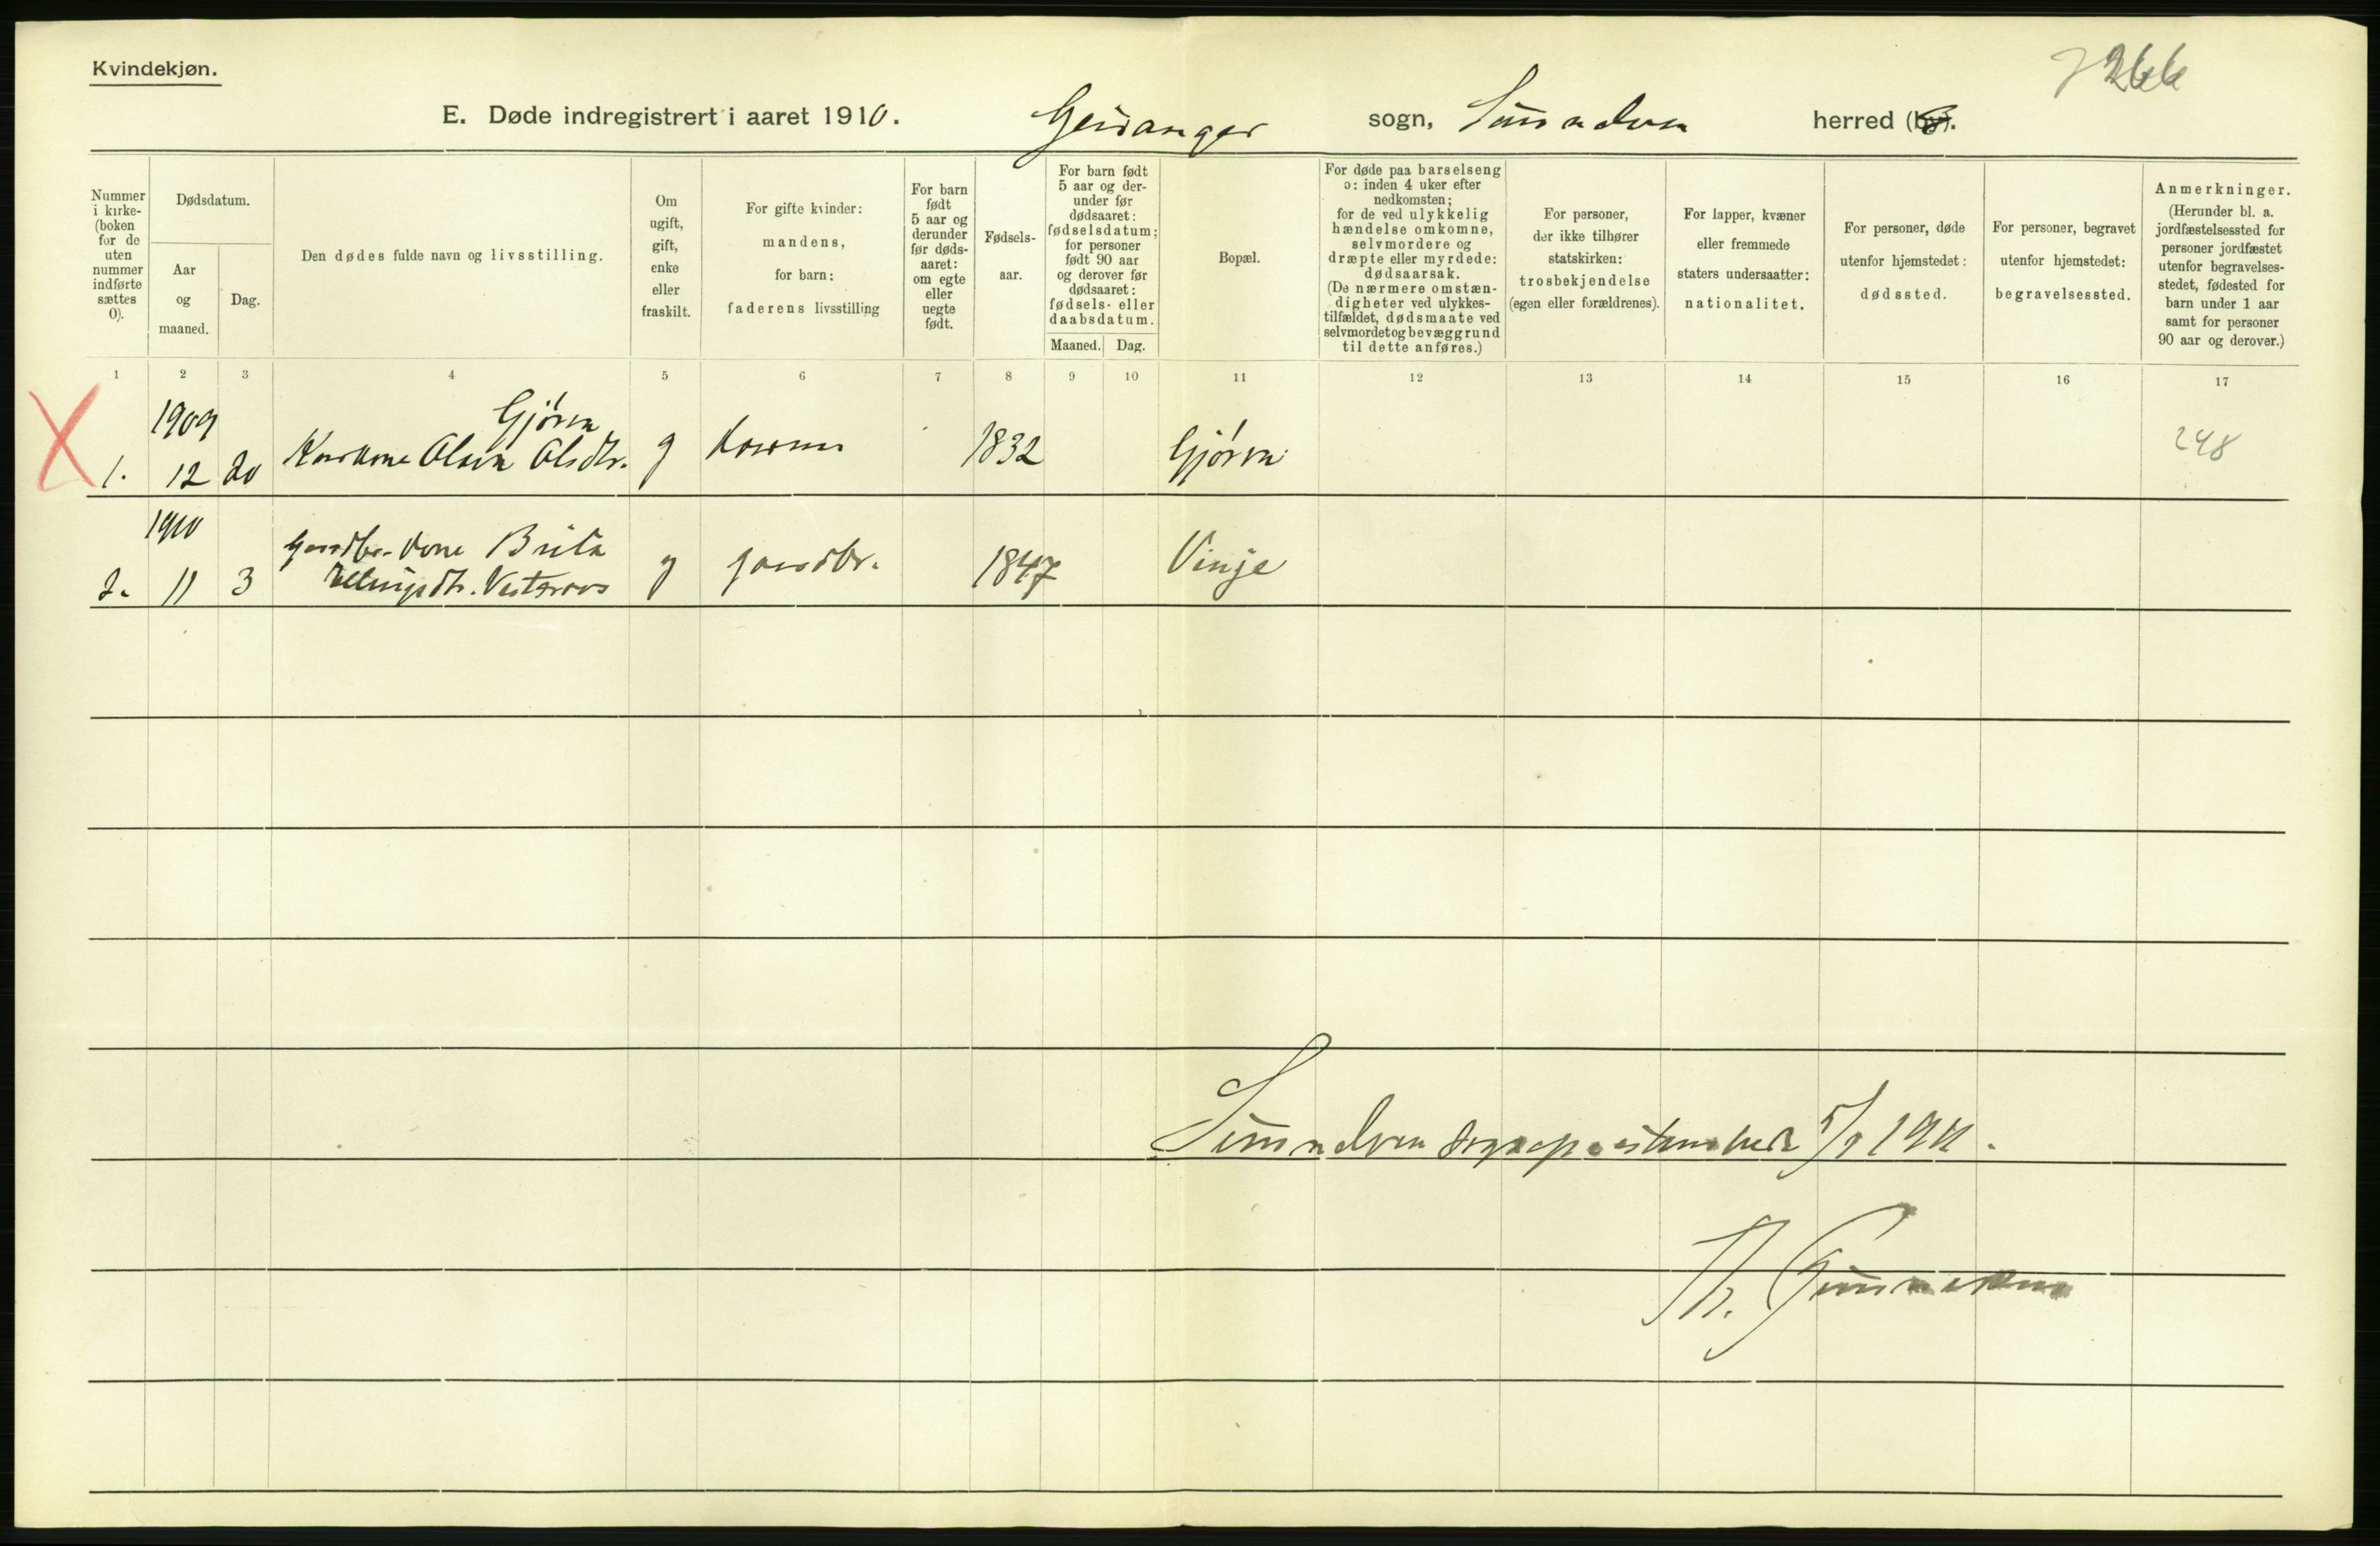 Kvindekjøn.
266
E. Døde indregistrert i aaret 1910. Geiranger sogn, Sunnelven herred (by).
Nummer i kirke- (boken for de uten nummer indførte sættes 0).
Dødsdatum.
Aar og maaned.
Dag.
Den dødes fulde navn og livsstilling.
Om ugift, gift, enke eller fraskilt.
For gifte kvinder: mandens, for barn: faderens livsstilling
For barn født 5 aar og derunder før døds- aaret: om egte eller uegte født.
Fødsels- aar.
For barn født 5 aar og der- under før dødsaaret: fødselsdatum; for personer født 90 aar og derover før dødsaaret: fødsels- eller daabsdatum.
Maaned. Dag.
Bopæl.
For døde paa barselseng ɔ: inden 4 uker efter nedkomsten; for de ved ulykkelig hændelse omkomne, selvmordere og dræpte eller myrdede: dødsaarsak. (De nærmere omstæn- digheter ved ulykkes- tilfældet, dødsmaate ved selvmordet og bevæggrund til dette anføres.)
For personer, der ikke tilhører statskirken: trosbekjendelse (egen eller forældrenes).
For lapper, kvæner eller fremmede staters undersaatter: nationalitet.
For personer, døde utenfor hjemstedet: dødssted.
For personer, begravet utenfor hjemstedet: begravelsessted.
Anmerkninger. (Herunder bl. a. jordfæstelsessted for personer jordfæstet utenfor begravelses- stedet, fødested for barn under 1 aar samt for personer 90 aar og derover.)
1 2 3 4 5 6 7 8 9 10 11 12 13 14 15 16 17
1909 Gjørva
1. 12 20 Olsdtr. g 1832 Gjørva 248
1910 Gaardbr. kone Brita
2. 11 3 g gaardbr. 1847 Vinje
Sunnelven sogneprestembede 5/1 1911.